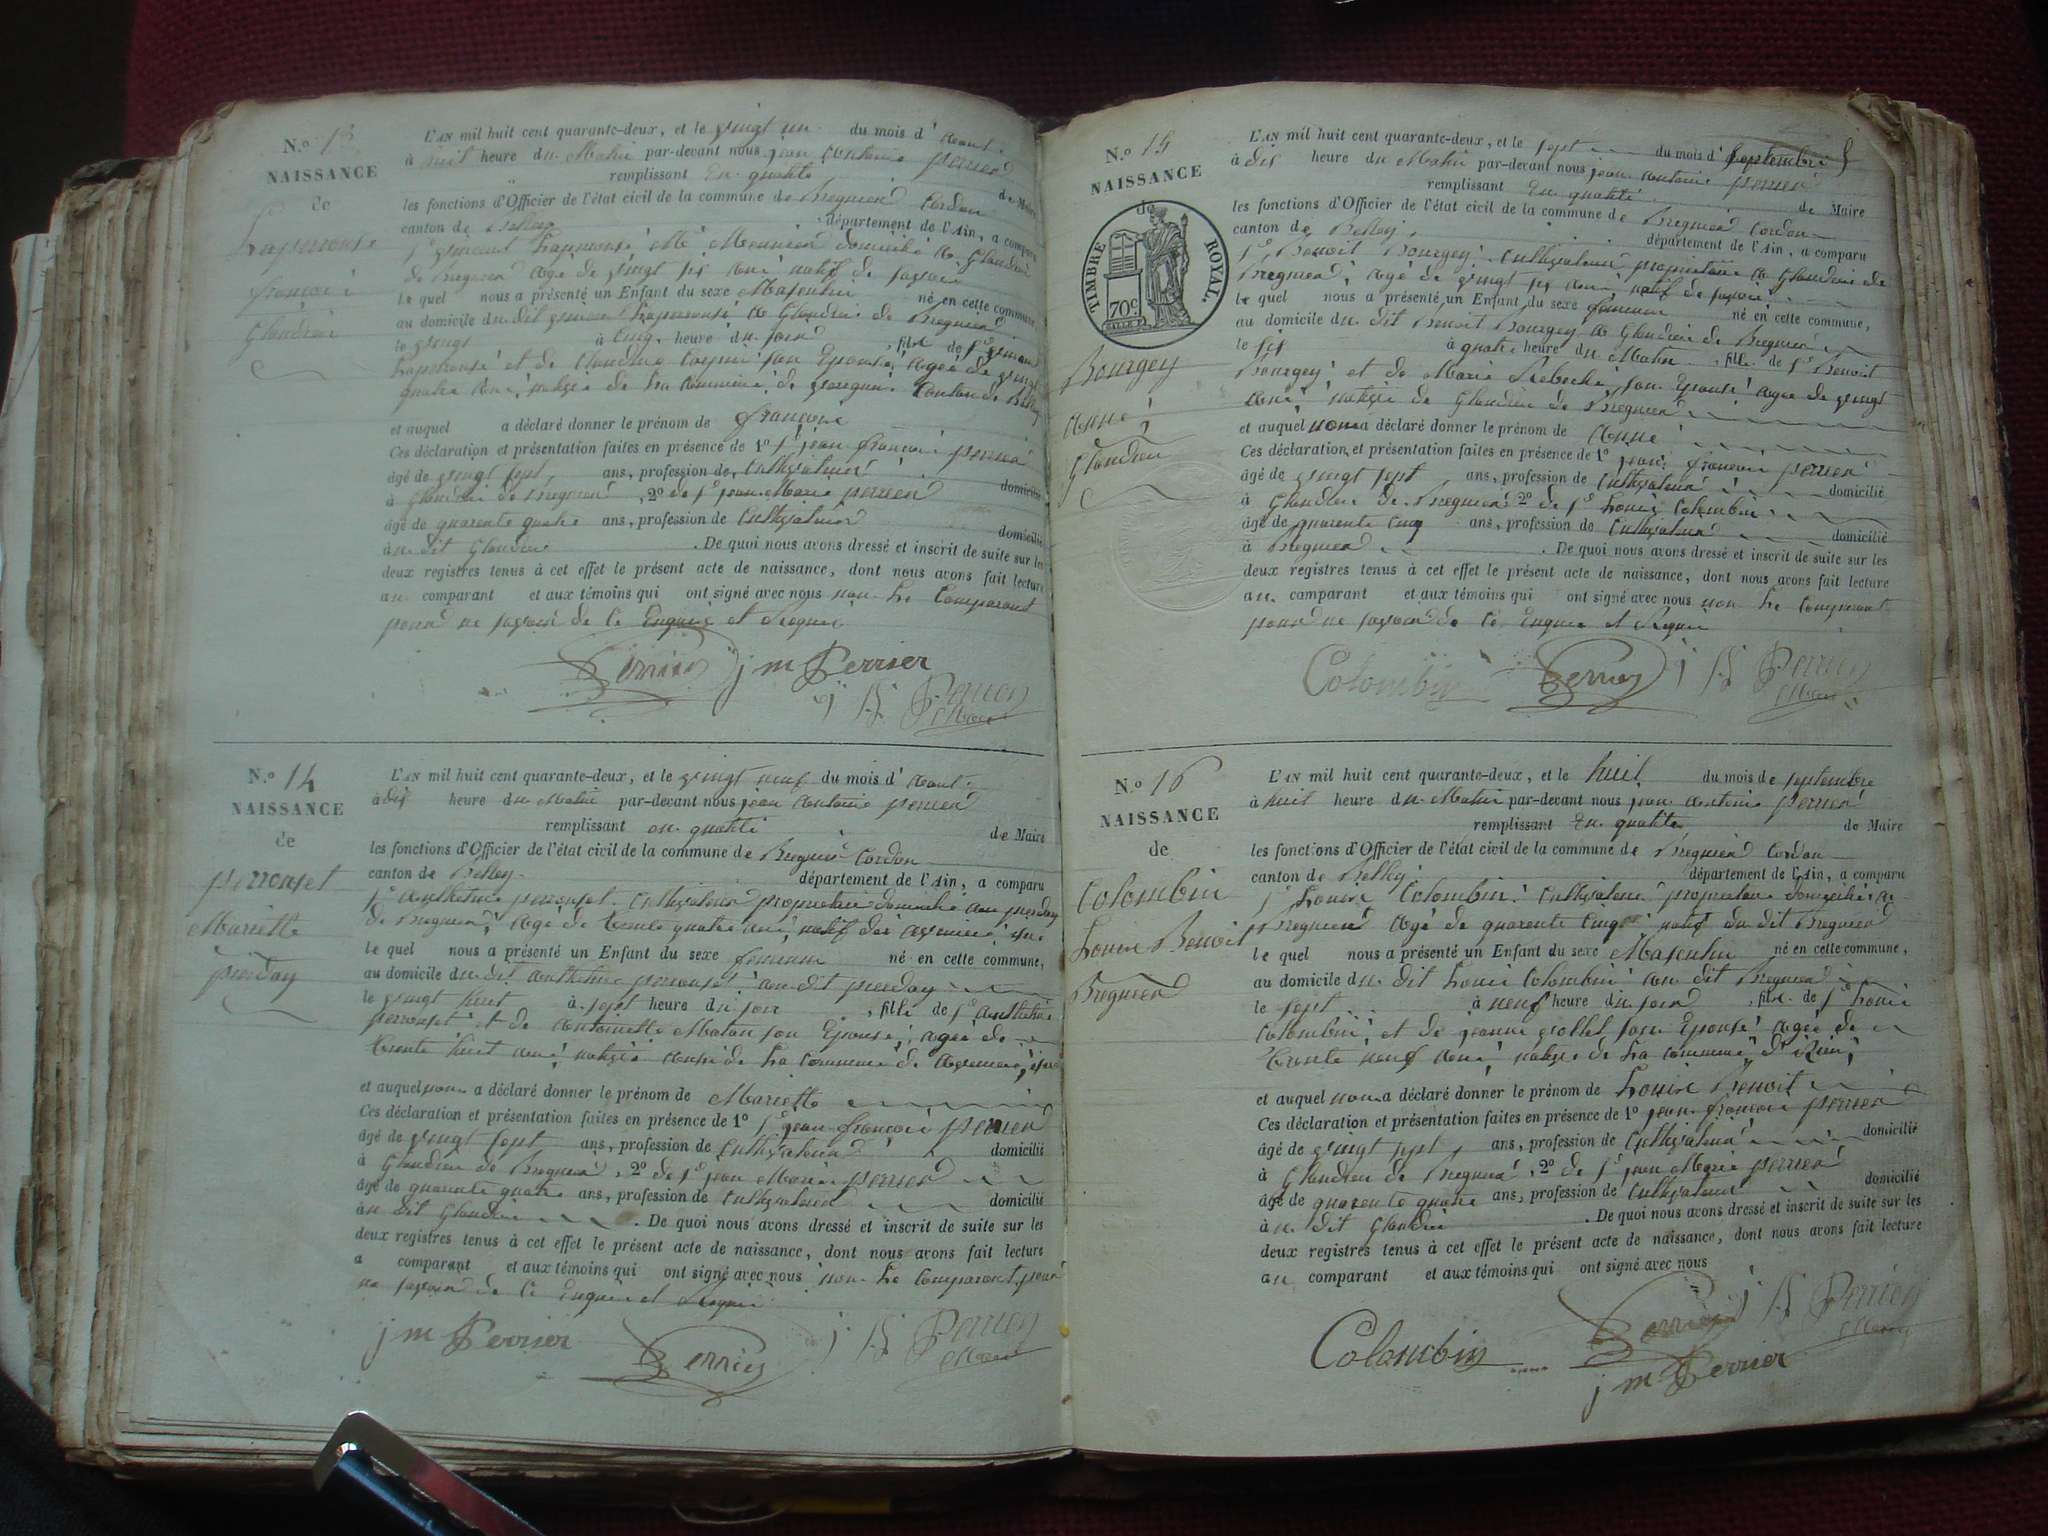 N.o 13
NAISSANCE
de
Laperouse
françois
Glandieu
L'AN mil huit cent quarante-deux, et le vingt un du mois d' aout
à huit heure du Matin par-devant nous jean antoine perrier
remplissant en qualité de Maire
les fonctions d'Officier de l'état civil de la commune de Bregnier Cordon
canton de Belley département de l'Ain, a comparu
de Bregnier agé de vingt six ans natif de
le quel nous a présenté un Enfant du sexe Masculin né en cette commune,
au domicile du dit Laperouse a Glandieu de Bregnier
le vingt à cinq heure du soir, fils de
Laperouse et de Claudine son Epouse agée de vingt
quatre ans, native de La commune de Canton de Belley
et auquel a déclaré donner le prénom de françois
Ces déclaration et présentation faites en présence de 1o Sr jean françois perrier
âgé de vingt sept ans, profession de Cultivateur domicilié
à Glandieu de Bregnier, 2o de Sr jean Marie perrier
âgé de quarente quatre ans, profession de Cultivateur domicilié
au dit Glandieu. De quoi nous avons dressé et inscrit de suite sur les
deux registres tenus à cet effet le présent acte de naissance, dont nous avons fait lecture
au comparant et aux témoins qui ont signé avec nous non Le Comparant
pour ne savoir de Ce Enquis et Requis
Perrier j m Perrier
j A Perrier
Maire
N.o 14
NAISSANCE
de
perrouset
Mariette
pierday
L'AN mil huit cent quarante-deux, et le vingt neuf du mois d' aout
à dix heure du Matin par-devant nous jean antoine perrier
remplissant en qualité de Maire
les fonctions d'Officier de l'état civil de la commune de Bregnier Cordon
canton de Belley département de l'Ain, a comparu
Sr Anthelme perrouset Cultivateur proprietaire domicilié au pierday
de Bregnier, agé de trente quatre ans, natif
le quel nous a présenté un Enfant du sexe feminin né en cette commune,
au domicile du dit anthelme perrouset au dit pierday
le vingt huit à sept heure du soir, fille de Sr Anthelme
perrouset et de Antoinette son Epouse, agée de
trente huit ans, native aussi de La commune de
et auquel nous a déclaré donner le prénom de Mariette
Ces déclaration et présentation faites en présence de 1o Sr jean françois perrier
âgé de vingt sept ans, profession de Cultivateur domicilié
à Glandieu de Bregnier, 2o de Sr jean Marie perrier
âgé de quarante quatre ans, profession de Cultivateur domicilié
au dit Glandieu. De quoi nous avons dressé et inscrit de suite sur les
deux registres tenus à cet effet le présent acte de naissance, dont nous avons fait lecture
a comparant et aux témoins qui ont signé avec nous non Le Comparant pour
ne savoir de Ce Enquis et Requis
j m Perrier Perrier j A Perrier
Maire
N.o 15
NAISSANCE
de
TIMBRE ROYAL.
70c.
Bourgey
anne
Glandieu
L'AN mil huit cent quarante-deux, et le sept du mois d' Septembre
à dix heure du Matin par-devant nous jean antoine perrier
remplissant En qualité de Maire
les fonctions d'Officier de l'état civil de la commune de Bregnier Cordon
canton de Belley, département de l'Ain, a comparu
Sr Benoit Bourgey Cultivateur proprietaire a Glandieu de
Bregnier, agé de vingt six ans natif de
le quel nous a présenté un Enfant du sexe feminin né en cette commune,
au domicile du dit Benoit Bourgey a Glandieu de Bregnier
le six à quatre heure du Matin, fille de Sr Benoit
Bourgey et de Marie son Epouse agée de vingt
ans, native de Glandieu de Bregnier
et auquel nous a déclaré donner le prénom de Anne
Ces déclaration et présentation faites en présence de 1o jean françois perrier
âgé de vingt sept ans, profession de Cultivateur domicilié
à Glandieu de Bregnier 2o de Sr Louis Colombin
âgé de quarente cinq ans, profession de Cultivateur domicilié
à Bregnier. De quoi nous avons dressé et inscrit de suite sur les
deux registres tenus à cet effet le présent acte de naissance, dont nous avons fait lecture
au comparant et aux témoins qui ont signé avec nous non Le Comparant
pour ne savoir de Ce Enquis et Requis
Colombin Perrier j A Perrier
Maire
N.o 16
NAISSANCE
de
Colombin
Louis Benoit
Bregnier
L'AN mil huit cent quarante-deux, et le huit du mois de septembre
à huit heure du Matin par-devant nous jean antoine perrier
remplissant En qualité de Maire
les fonctions d'Officier de l'état civil de la commune de Bregnier Cordon
canton de Belley département de l'Ain, a comparu
Sr Louis Colombin Cultivateur proprietaire domicilié a
Bregnier agé de quarente cinq ans natif du dit Bregnier
le quel nous a présenté un Enfant du sexe Masculin né en cette commune,
au domicile du dit Louis Colombin au dit Bregnier
le sept à neuf heure du soir, fils de Sr Louis
Colombin, et de jeanne son Epouse agée de
trente neuf ans, native de La commune
et auquel nous a déclaré donner le prénom de Louis Benoit
Ces déclaration et présentation faites en présence de 1o jean françois perrier
âgé de vingt sept, ans, profession de Cultivateur domicilié
à Glandieu de Bregnier, 2o de Sr jean Marie perrier
âgé de quarente quatre ans, profession de Cultivateur domicilié
au dit Glandieu. De quoi nous avons dressé et inscrit de suite sur les
deux registres tenus à cet effet le présent acte de naissance, dont nous avons fait lecture
au comparant et aux témoins qui ont signé avec nous
Colombin Perrier j A Perrier
Maire
j m Perrier